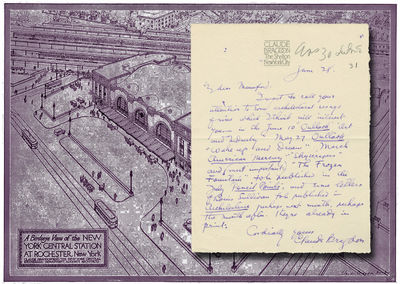 CLAUDE
BRAGDON
The Shelton
New York City
31
June 28.
My dear Mumford:
I want to call your
attention to some architectural essays
of mine which I think will interest
you— in the June 10 Outlook "Art
and
" May 27 Outlook
"Wake up and Dream" March
American Mercury "Skyscrapers"
and (most important) "The Frozen
Fountain" to be published in the
July Pencil Points, and some letters
of Louis Sullivan to be published in
Architecture perhaps next month, perhaps
the month after. They're already in
print.
Cordially yours
Claude Bragdon
A Birdseye View of the NEW
YORK CENTRAL STATION
AT ROCHESTER, New York